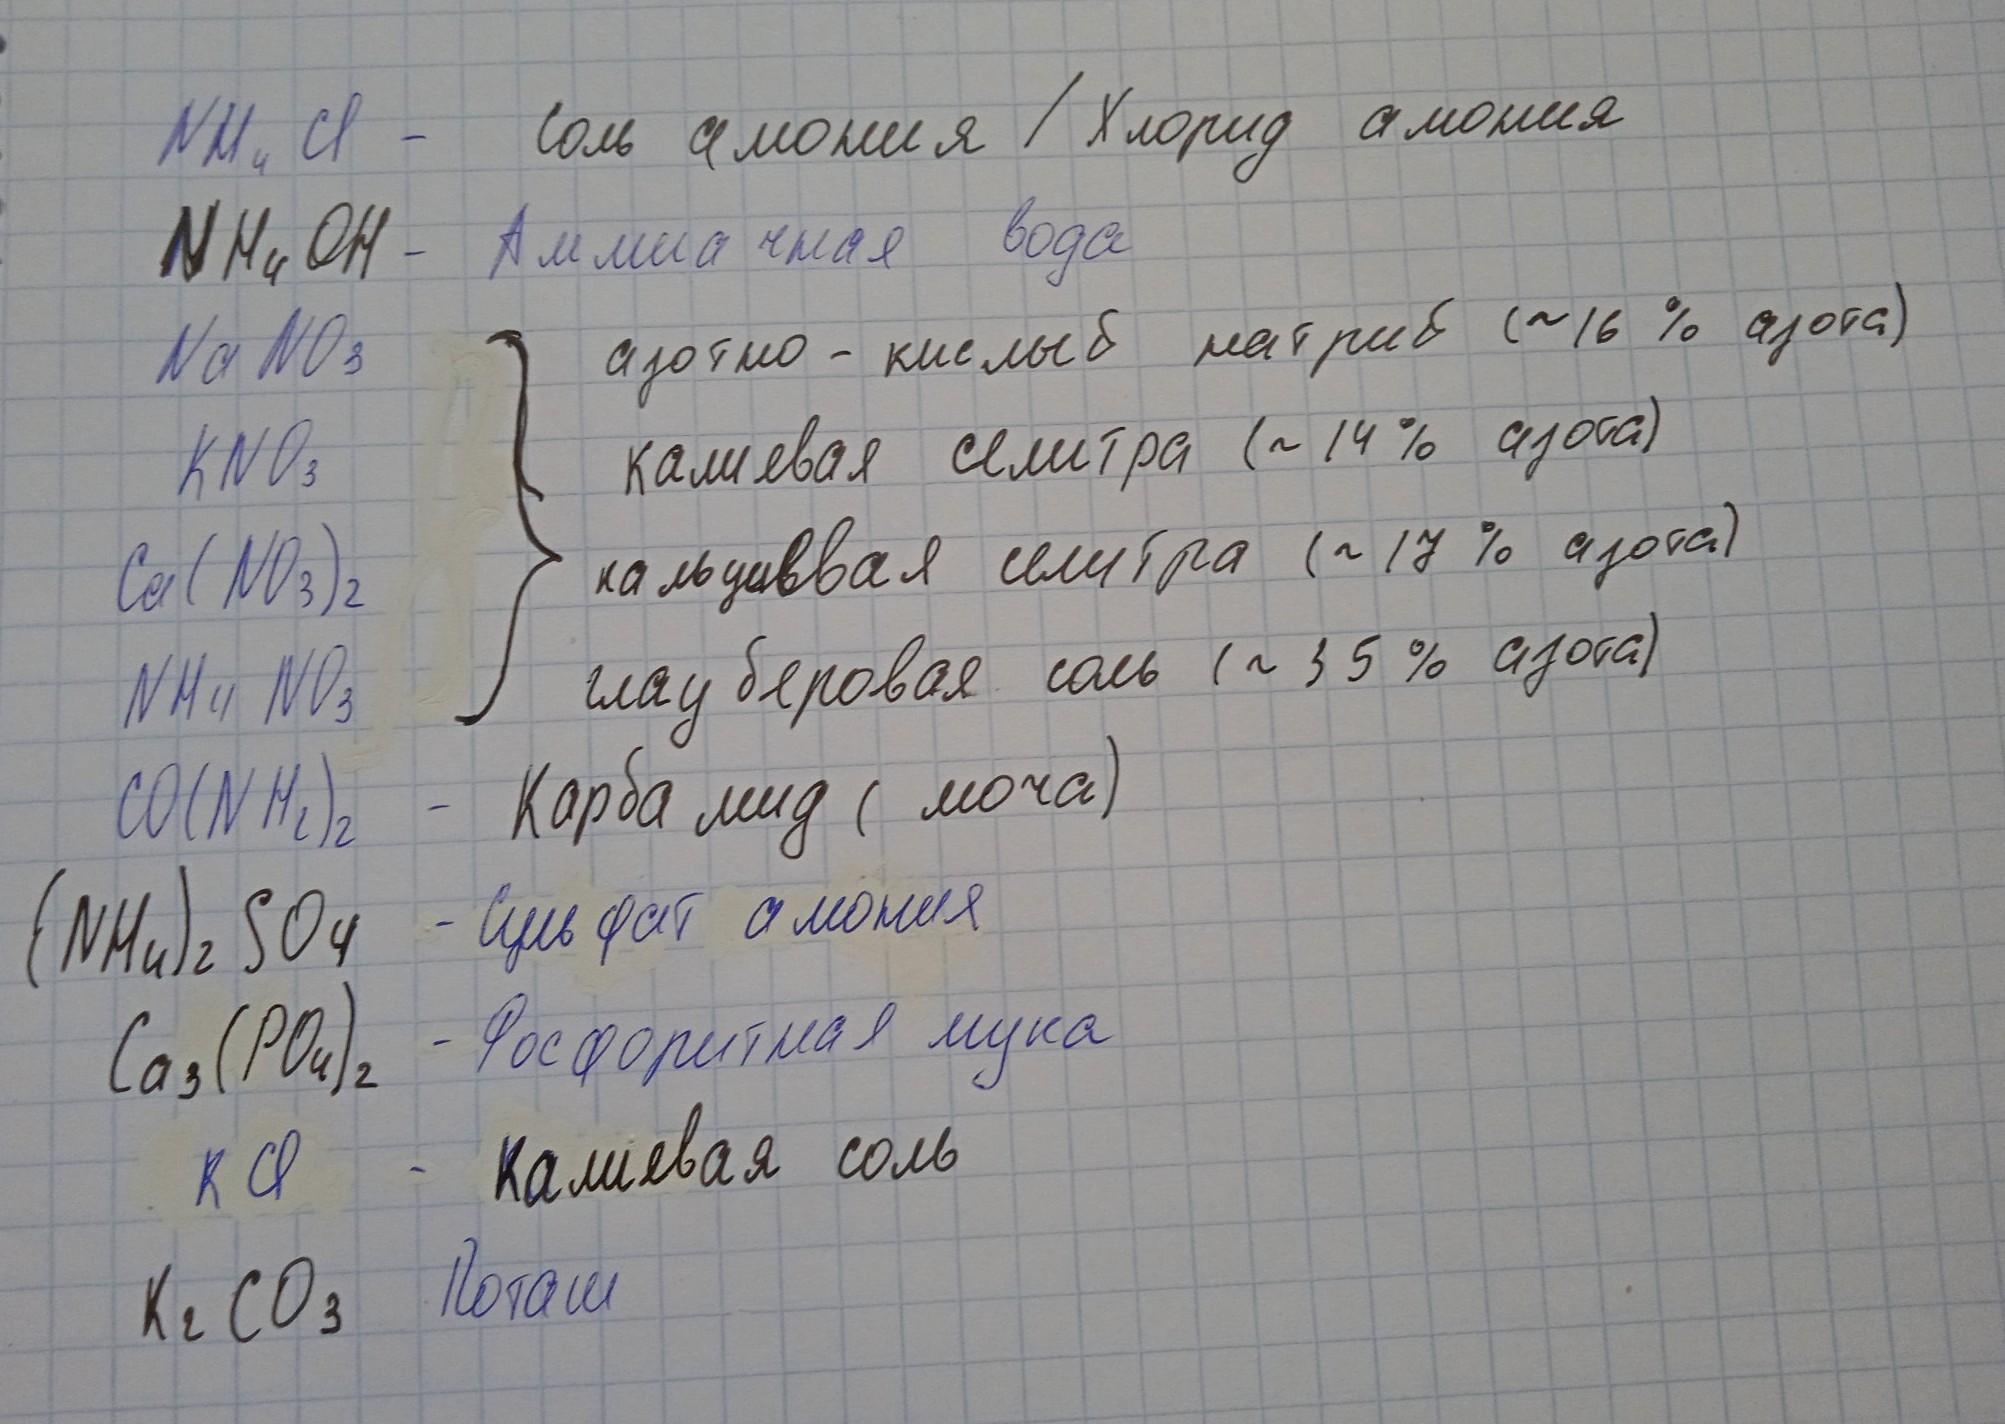 NH₄Cl - Соль амония / Хлорид амония
NH₄OH - Аммиачная вода
NaNO₃ азотно-кислый натрий (~16 % азота)
KNO₃ калиевая селитра (~14 % азота)
Ca(NO₃)₂ кальциевая селитра (~17 % азота)
NH₄NO₃ глауберовая соль (~35 % азота)
CO(NH₂)₂ - Карбамид (моча)
(NH₄)₂SO₄ - Сульфат амония
Ca₃(PO₄)₂ - Фосфоритная мука
KCl - Калиевая соль
K₂CO₃ Поташ